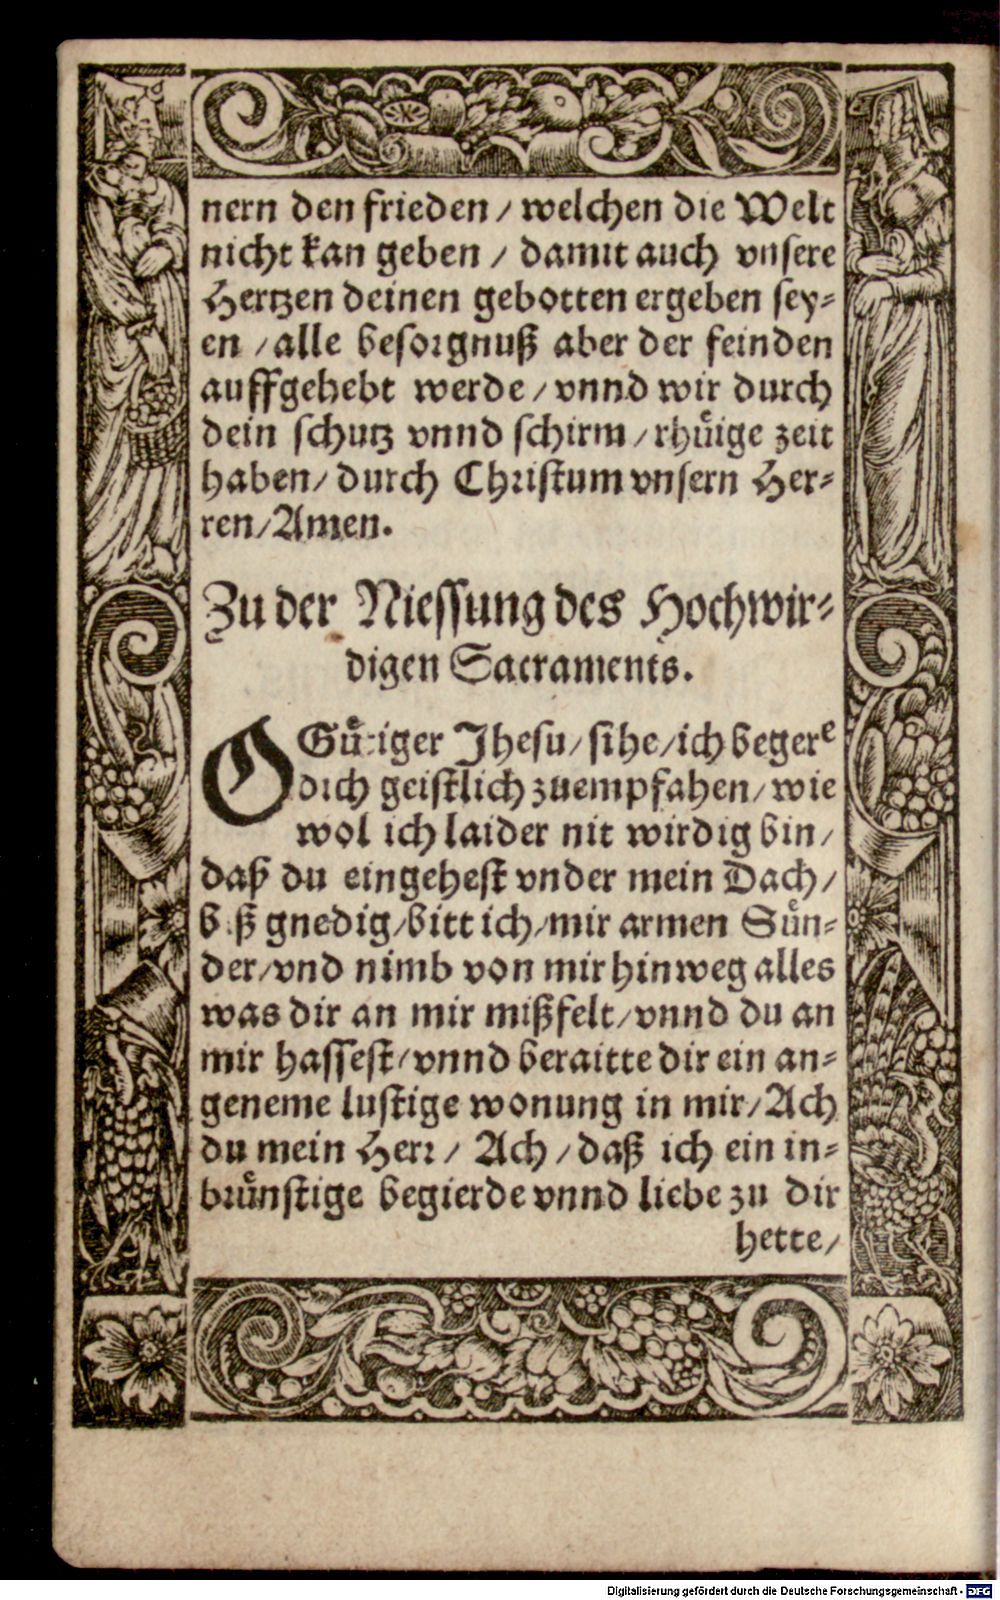 nern den frieden / welchen die Welt
nicht kan geben / damit auch vnsere
Hertzen deinen gebotten ergeben sey⸗
en / alle besorgnuß aber der feinden
auffgehebt werde / vnnd wir durch
dein schutz vnnd schirm / rhuͤige zeit
haben / durch Christum vnsern Her⸗
ren / Amen.
Zu der Niessung des Hochwir⸗
digen Sacraments.
O Guͤtiger Jhesu / sihe / ich begere
dich geistlich zuempfahen / wie
wol ich laider nit wirdig bin /
daß du eingehest vnder mein Dach /
biß gnedig / bitt ich / mir armen Suͤn⸗
der / vnd nimb von mir hinweg alles
was dir an mir mißfelt / vnnd du an
mir hassest / vnnd beraitte dir ein an⸗
geneme lustige wonung in mir / Ach
du mein Herr / Ach / daß ich ein in⸗
bruͤnstige begierde vnnd liebe zu dir
hette /
Digitalisierung gefördert durch die Deutsche Forschungsgemeinschaft - DFG